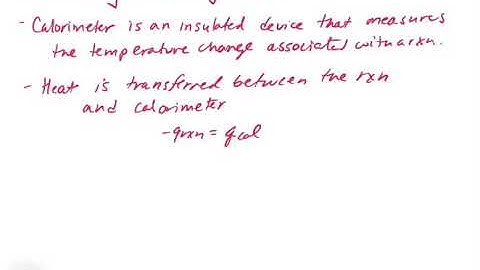 - Calorimeter is an insulated device that measures
the temperature change associated with a rxn.
- Heat is transferred between the rxn
and calorimeter
-qrxn = qcal